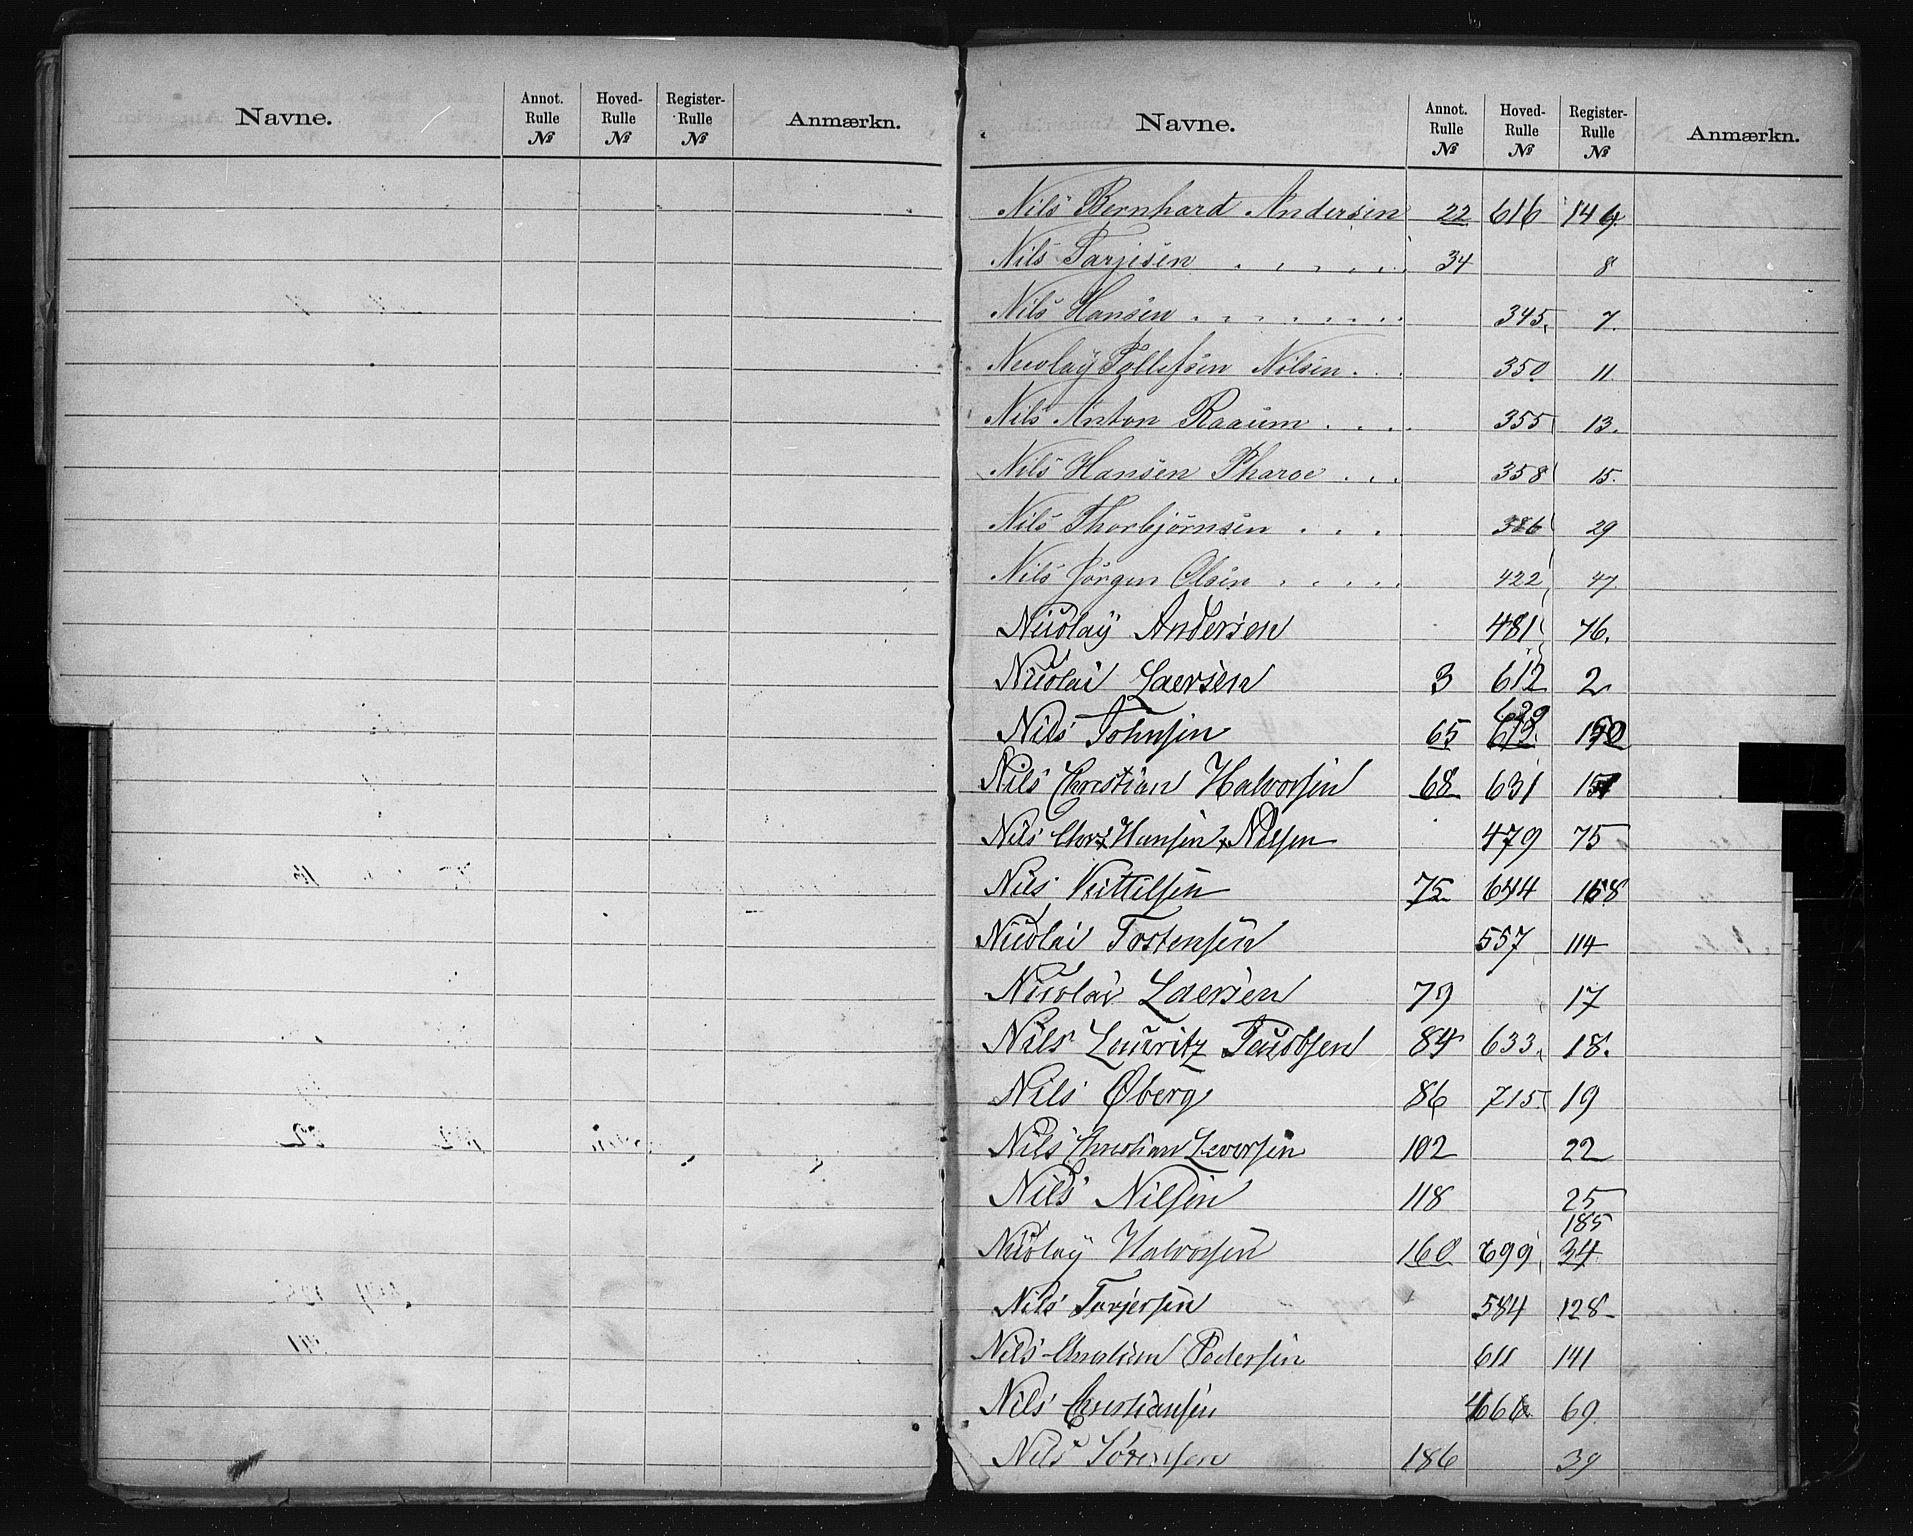 Navne. Annot. Rulle № Hoved-Rulle № Register-Rulle № Anmærkn.
Navne. Annot. Rulle № Hoved-Rulle № Register-Rulle № Anmærkn.
Nils Bernhard Andersen 22 616 144
Nils Tarjesen . . . . . . 34 8
Nils Hansen . . . . . . . 345 7.
Nicolaÿ Tollefsen Nilsen . . 350 11.
Nils Anton Raaum . . . . 355 13.
Nils Hansen Pharoe . . . 358 15.
Nils Thorbjørnsen . . . 386 29
Nils Jørgen Olsen . . . . . 422 47
Nicolaÿ Andersen 481 76.
Nicolai Laersen 3 612 2
Nils Johnsen 65 629 150
Nils Christian Halvorsen 68 631 151
Nils Chr. Hansen Nilsen 479 75
Nils Kittilsen 75 644 158
Nicolai Tostensen 557 114
Nicolai Laersen 79 17
Nils Lauritz Jacobsen 84 633 18.
Nils Øberg 86 715 19
Nils Christian Leversen 102 22
Nils Nilsen 118 25
185
Nicolaÿ Halvorsen 160 699 34
Nils Tarjersen 584 128
Nils Christian Pedersen 611 141
Nils Christiansen 466 69
Nils Sørensen 186 39